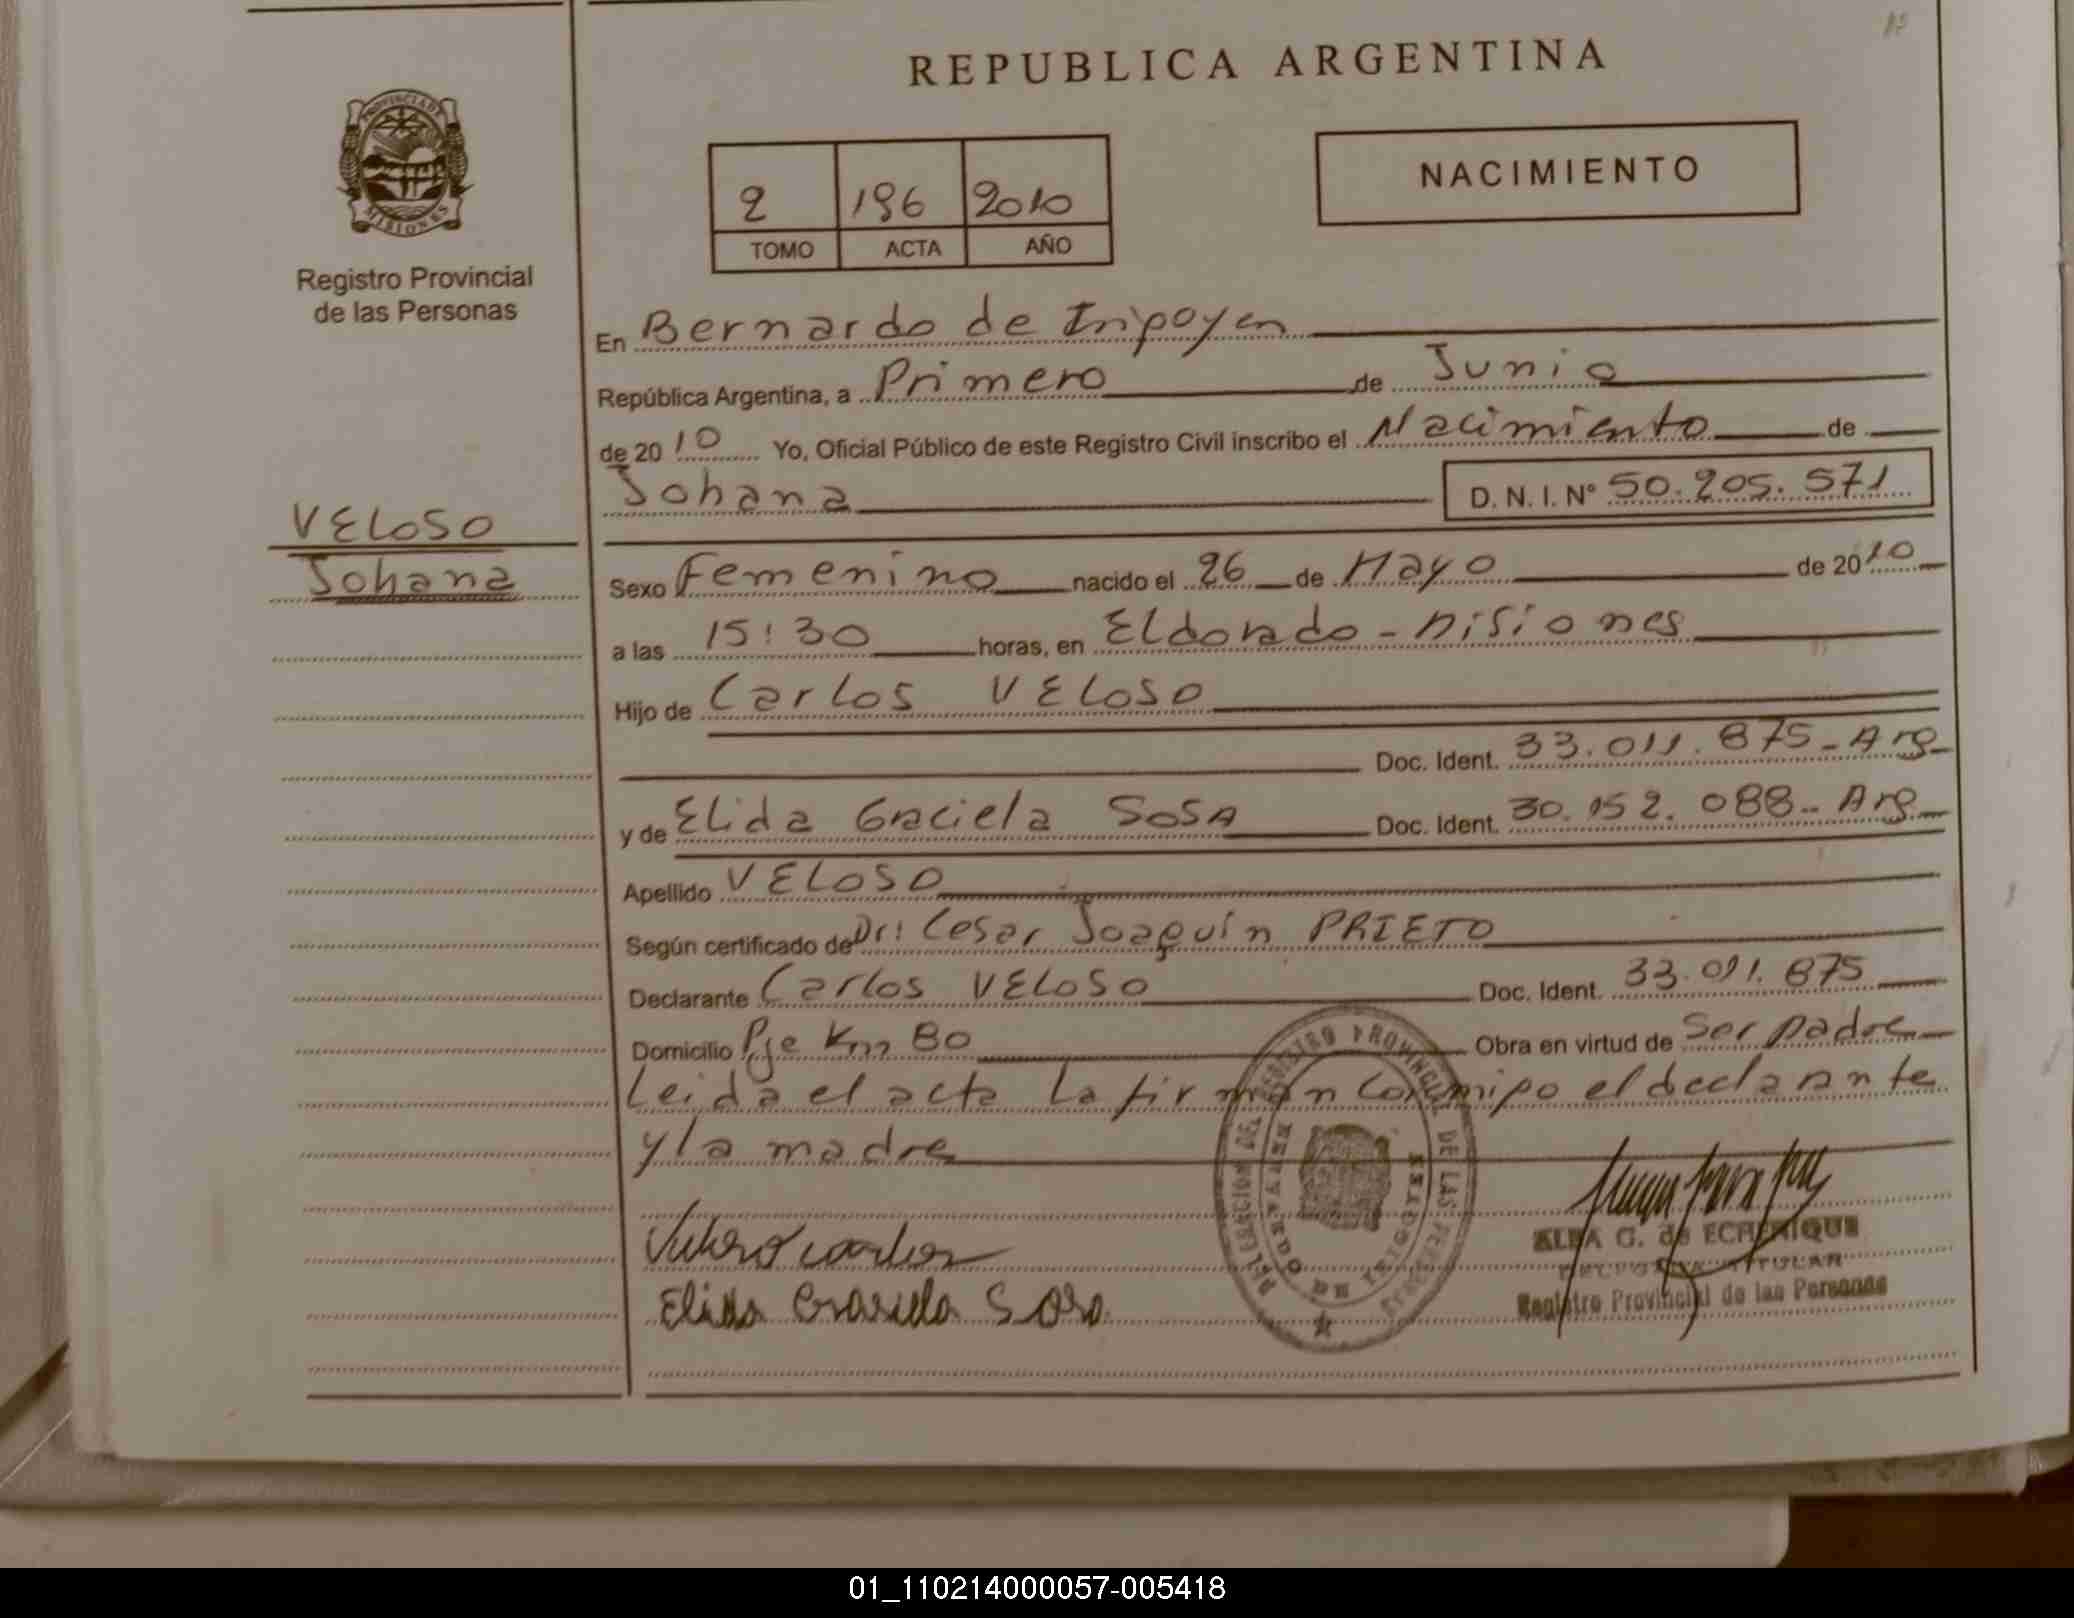 REPUBLICA ARGENTINA
PROVINCIA DE
MISIONES
Registro Provincial
de las Personas
2 196 2010
TOMO ACTA AÑO
NACIMIENTO
En Bernardo de Iripoyen
República Argentina, a Primero de Junio
de 2010 Yo, Oficial Público de este Registro Civil inscribo el Nacimiento de
Johana D. N. I. Nº 50.205.571
VELOSO
Johana
Sexo Femenino nacido el 26 de Mayo de 2010
a las 15:30 horas, en Eldorado - Misiones
Hijo de Carlos VELOSO
Doc. Ident. 33.011.875 - Arg
y de Elida Graciela SOSA Doc. Ident. 30.152.088 - Arg
Apellido VELOSO
Según certificado de Dr: Cesar Joaquín PRIETO
Declarante Carlos VELOSO Doc. Ident. 33.011.875
Domicilio Pje Km 80 Obra en virtud de Ser padre
Leida el acta la firman conmipo el declarante
y la madre
DELEGACION DEL REGISTRO PROVINCIAL DE LAS PERSONAS
BERNARDO DE IRIGOYEN
Elida Graciela Sosa
ALBA G. de ECHENIQUE
TITULAR
Registro Provincial de las Personas
01_110214000057-005418